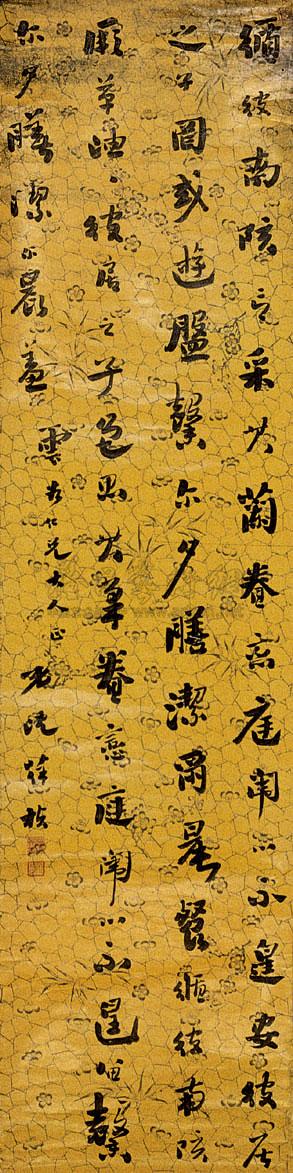 循彼南陔言采其蘭眷恋庭闈心不遑安彼居
之子罔或遊盤馨尔夕膳潔爾晨餐循彼南陔
厥草油〻彼居之子色思其柔眷恋庭闈心不遑留馨
尔夕膳潔尔晨羞 雲仁兄大人正